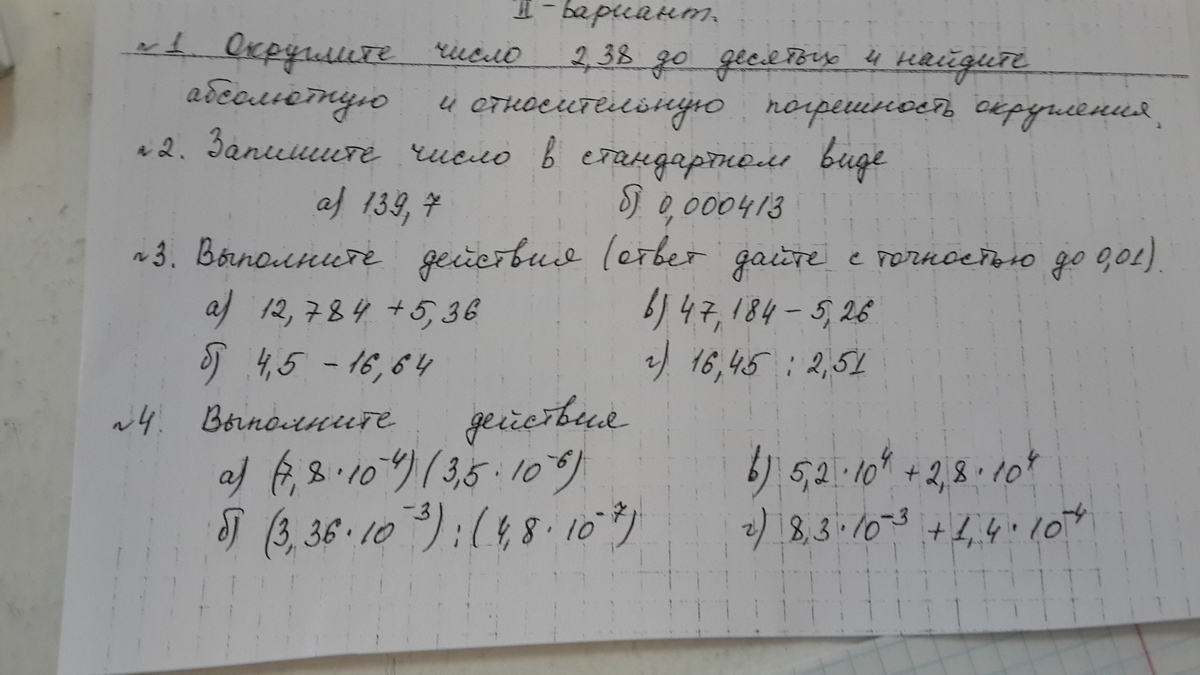 II - Вариант.
№1. Округлите число 2,38 до десятых и найдите
абсолютную и относительную погрешность округления.
№2. Запишите число в стандартном виде
а) 139,7 б) 0,000413
№3. Выполните действия (ответ дайте с точностью до 0,01).
а) 12,784 + 5,36 в) 47,184 - 5,26
б) 4,5 - 16,64 г) 16,45 : 2,51
№4. Выполните действия
а) (7,8 · 10⁻⁴) (3,5 · 10⁻⁶) в) 5,2 · 10⁴ + 2,8 · 10⁴
б) (3,36 · 10⁻³) : (4,8 · 10⁻⁷) г) 8,3 · 10⁻³ + 1,4 · 10⁻⁴